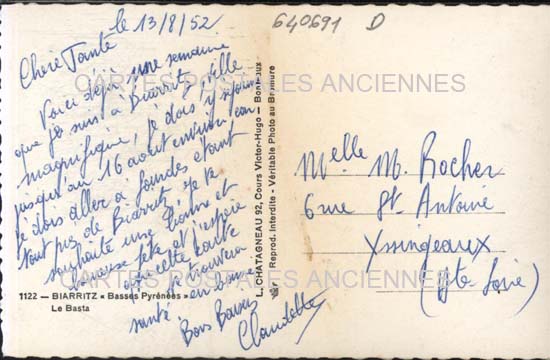 le 13/8/52
640691 D
Chère Tante
Voici déjà une semaine
que je suis à Biarritz ville
magnifique, je dois y séjourner
jusqu'au 16 août environ, car
je dois aller à Lourdes étant
tout près de Biarritz. Je te
souhaite une bonne et
heureuse fête et j'espère
que cette carte
te trouvera
en bonne
santé.
Bons Baisers
Claudette
CARTES POSTALES ANCIENNES
CARTES POSTALES ANCIENNES
1122 — BIARRITZ « Basses Pyrénées »
Le Basta
L. CHATAGNEAU 92, Cours Victor-Hugo — Bordeaux
Reprod. Interdite - Véritable Photo au Bromure
Melle M. Rocher
6 rue St Antoine
Yssingeaux
(Hte Loire)